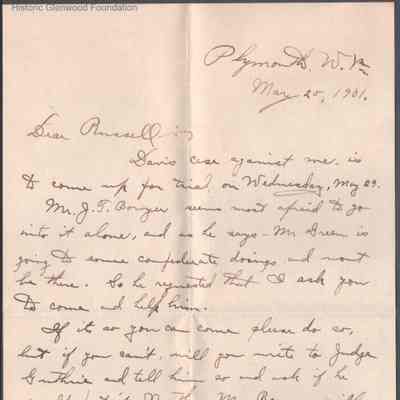 Historic Glenwood Foundation
Plymouth, W. Va
May 25, 1901.
Dear Russell
Davis case against me is
to come up for trial on Wednesday, May 29.
Mr. J. T. seems most afraid to go
into it alone, and as he says - Mr Green is
going to some confederate doings and wont
be there. So he requested that I ask you
to come and help him.
If its so you can come please do so,
but if you can't, will you write to Judge
Guthrie and tell him so and ask if he